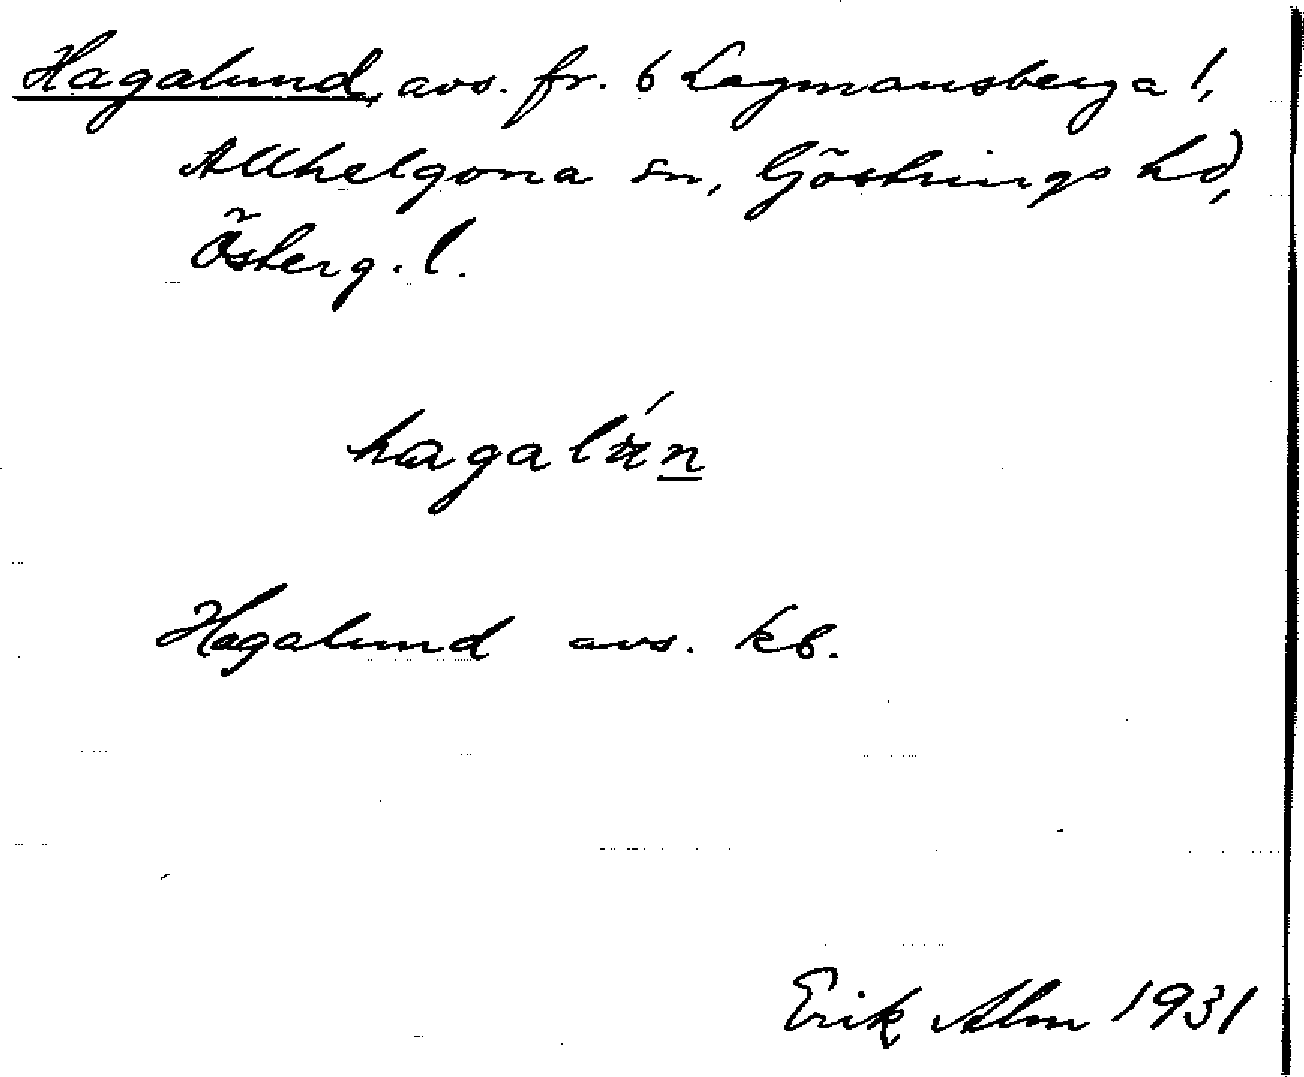 Hagalund, avs. fr. 6 Lagmansberga 1,
Allhelgona sn, Göstrings hd,
Österg. l.
hagalún
Hagalund avs. kb.
Erik Alm 1931